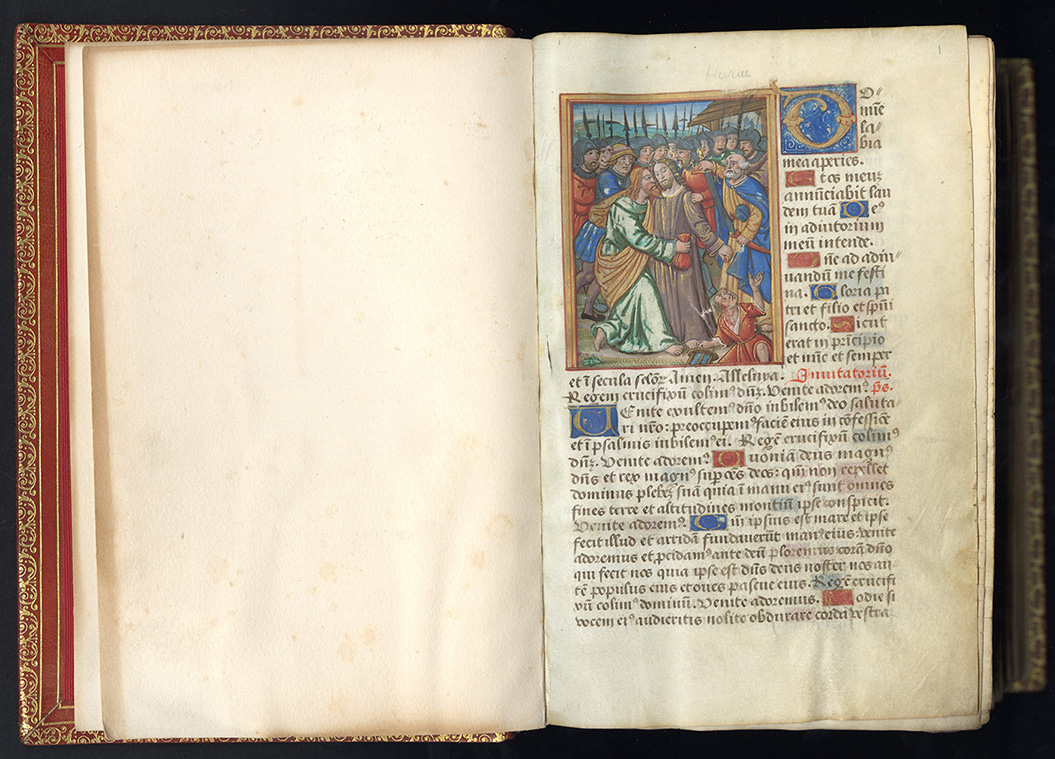 Horae
1
Do⸗
mīe
la⸗
bia
mea aperies.
Et os meuꝫ
annūciabit lau
dem tuā Deꝰ
in adiutorium
meū intende.
Dñe ad adiu⸗
uandū me festi
na. Gloria pa
tri et filio et spūi
sancto. Sicut
erat in principio
et nūc et semper
et ī secula seculoꝝ Amen. Alleluya. Inuitatoriū.
Regem crucifixū colimꝰ dñꝫ. Venite adoremꝰ. p̄s.
Venite exultemꝰ dño iubilemꝰ deo saluta⸗
ri nr̄o: preoccupemꝰ faciē eius in cōfessiōe
et ī psalmis iubilemꝰ ei. Regē crucifixū colimꝰ
dñꝫ. Venite adoremꝰ Quoniā deus magnꝰ
dñs et rex magnꝰ sup oēs deos: qm̄ non repellet
dominus plebē suā quia ī manu eiꝰ sunt omnes
fines terre et altitudines montiū ipse conspicit.
Venite adoremꝰ. Qm̄ ipsius est mare et ipse
fecit illud et aridā fundauerūt manꝰ eius: venite
adoremus et pcidamꝰ ante deū ploremus corā dño
qui fecit nos quia ipse est dñs deus noster nos au⸗
tē populus eius et oues pascue eius. Regē crucifi
xū colimꝰ dominū. Venite adoremus. Hodie si
vocem eiꝰ audieritis nolite obdurare corda vestra